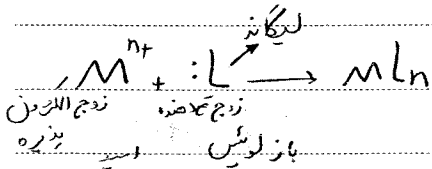 لیگاند
M^n+ + :L → MLn
زوج الکترون
پذیره
اسید
باز لوئیس